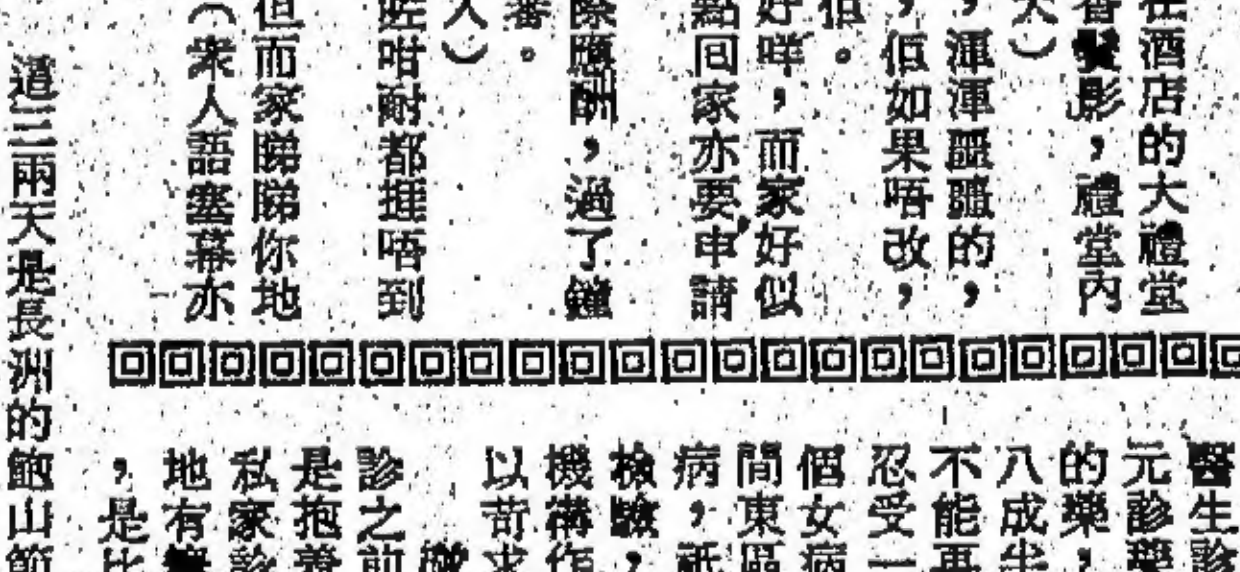 在酒店的大禮堂
香鬢影,禮堂內
大)
,渾渾噩噩的,
,佢如果唔改,
佢。
好咩,而家好似
點回家亦要申請
際應酬,過了鐘
審。
人)
咗咁耐都捱唔到
但而家睇睇你地
(衆人語塞幕亦
醫生診
元診藥
的藥,
八成半
不能再
忍受一
個女病
間東區
病,祇
檢驗,
機構作
以苛求
診之前
是抱着
私家診
地有
,是比
這三兩天是長洲的飽山節